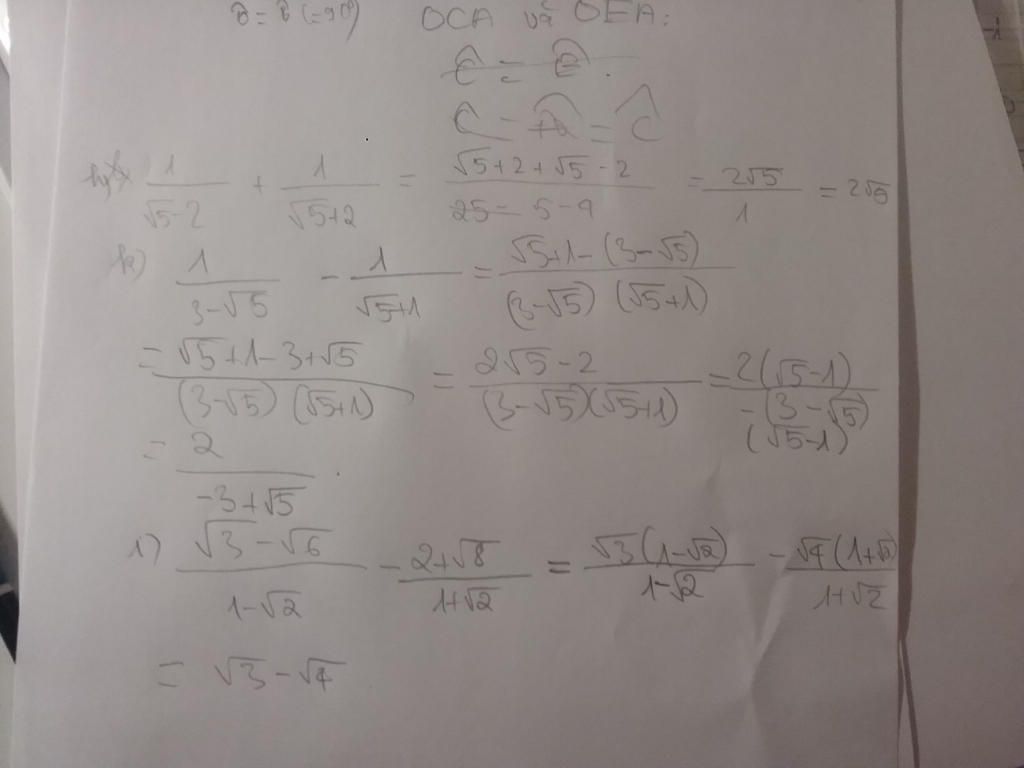 B̂ = Ê (=90°) OCA và OEA:
Ĉ = Ê.
C = = Ĉ
1/(√5-2) + 1/(√5+2) = (√5+2+√5-2)/(25 = 5-4) = 2√5/1 = 2√5
k) 1/(3-√5) - 1/(√5+1) = (√5+1-(3-√5))/((3-√5)(√5+1))
= (√5+1-3+√5)/((3-√5)(√5+1)) = (2√5-2)/((3-√5)(√5+1)) = 2(√5-1)/(-(3-√5)(√5-1))
= 2/(-3+√5).
1) (√3-√6)/(1-√2) - (2+√8)/(1+√2) = √3(1-√2)/(1-√2) - √4(1+√2)/(1+√2)
= √3-√4